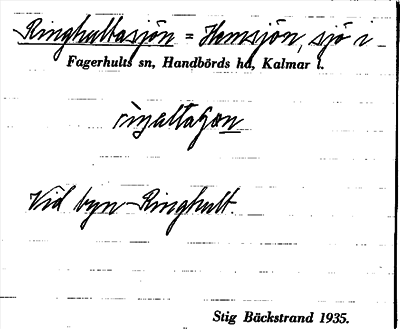 Ringhultasjön = Hemsjön, sjö i
Fagerhults sn, Handbörds hd, Kalmar l.
Vid byn Ringhult.
Stig Bäckstrand 1935.